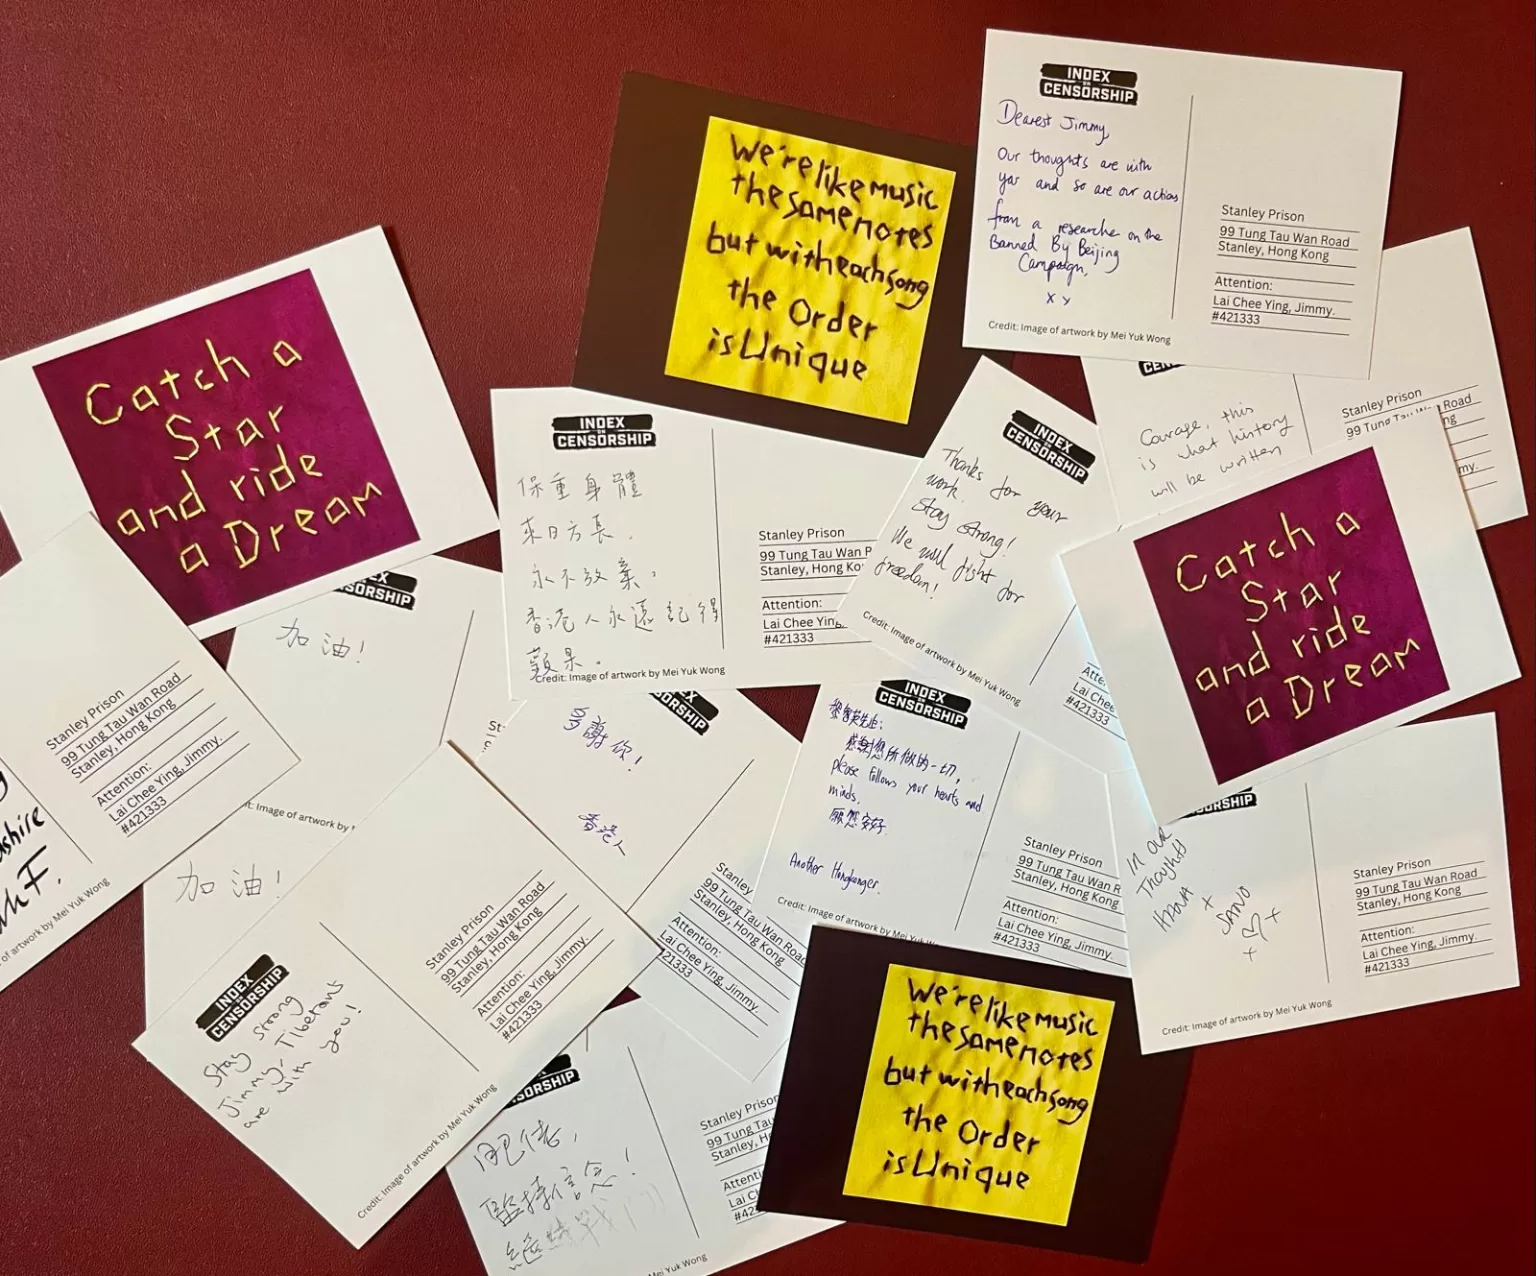 INDEX
ON
CENSORSHIP
Dearest Jimmy,
Our thoughts are with
you and so are our actions
from a researcher on the
Banned By Beijing
Campaign.
x x
Credit: Image of artwork by Mei Yuk Wong
Stanley Prison
99 Tung Tau Wan Road
Stanley, Hong Kong
Attention:
Lai Chee Ying, Jimmy.
#421333
We're like music
the same notes
but with each song
the Order
is Unique
Catch a
Star
and ride
a Dream
INDEX
ON
CENSORSHIP
保重身體
來日方長.
永不放棄。
香港人永遠記得
蘋果。
Credit: Image of artwork by Mei Yuk Wong
Stanley Prison
99 Tung Tau Wan R
Stanley, Hong Ko
Attention:
Lai Chee Ying,
#421333
INDEX
ON
CENSORSHIP
Thanks for your
work.
Stay strong!
We will fight for
freedom!
Credit: Image of artwork by Mei Yuk Wong
Atte
Lai Chee
#421333
Courage, this
is what history
will be written
Stanley Prison
99 Tung Road
my.
Catch a
Star
and ride
a Dream
SORSHIP
加油!
Stanley Prison
99 Tung Tau Wan Road
Stanley, Hong Kong
Attention:
Lai Chee Ying, Jimmy.
#421333
shire
F.
of artwork by Mei Yuk Wong
t: Image of artwork by
加油!
多謝你!
香港人
Stanley
99 Tung Tau Wan Road
Stanley, Hong Kong
Attention:
Lai Chee Ying, Jimmy.
#421333
INDEX
ON
CENSORSHIP
黎智英先生:
感謝您所做的一切,
please follows your hearts and
minds.
願您安好.
Another Hongkonger.
Credit: Image of artwork by Mei Yuk W
Stanley Prison
99 Tung Tau Wan R
Stanley, Hong Kong
Attention:
Lai Chee Ying, Jimmy.
#421333
ORSHIP
In our
Thoughts
x
+
+
Credit: Image of artwork by Mei Yuk Wong
Stanley Prison
99 Tung Tau Wan Road
Stanley, Hong Kong
Attention:
Lai Chee Ying, Jimmy.
#421333
INDEX
ON
CENSORSHIP
Stay strong
Jimmy, Tibetans
are with you!
Credit: Image of artwork by Mei Yuk Wong
Stanley Prison
99 Tung Tau Wan Road
Stanley, Hong Kong
Attention:
Lai Chee Ying, Jimmy.
#421333
SORSHIP
肥佬,
堅持信念!
Stanley Prison
99 Tung Tau
Stanley, H
Attenti
Lai C
#42
Mei Yuk Wong
We're like music
the same notes
but with each song
the Order
is Unique